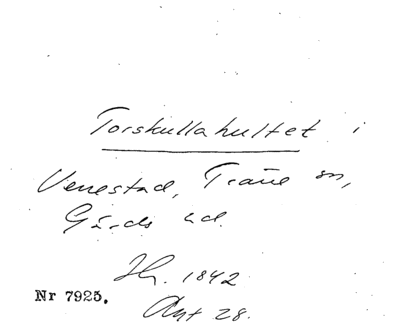 Torskullahultet i
Venestad, Träne sn,
Gärds hd.
Hr. 1842
Nr 7925.
Akt 28.